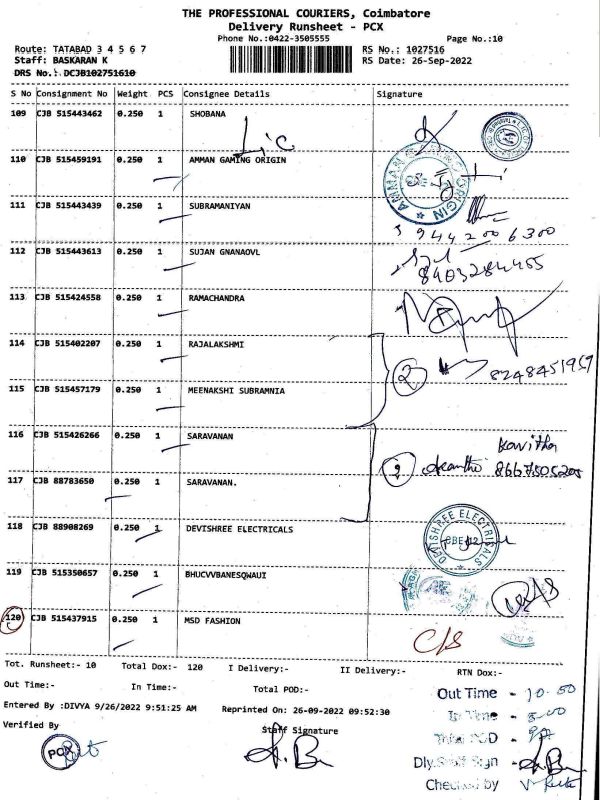 THE PROFESSIONAL COURIERS, Coimbatore
Delivery Runsheet - PCX
Phone No.:0422-3505555
Page No.:10
Route: TATABAD 3 4 5 6 7
RS No.: 1027516
Staff: BASKARAN K
RS Date: 26-Sep-2022
DRS No.: DCJB102751610
S No Consignment No Weight PCS Consignee Details Signature
109 CJB 515443462 0.250 1 SHOBANA
Lic
110 CJB 515459191 0.250 1 AMMAN GAMING ORIGIN
111 CJB 515443439 0.250 1 SUBRAMANIYAN
9442006300
112 CJB 515443613 0.250 1 SUJAN GNANAOVL
8403284455
113 CJB 515424558 0.250 1 RAMACHANDRA
114 CJB 515402207 0.250 1 RAJALAKSHMI
2 8248451959
115 CJB 515457179 0.250 1 MEENAKSHI SUBRAMNIA
116 CJB 515426266 0.250 1 SARAVANAN
Kavitha
117 CJB 88783650 0.250 1 SARAVANAN.
118 CJB 88908269 0.250 1 DEVISHREE ELECTRICALS
DEVISHREE ELECTRICALS
119 CJB 515350657 0.250 1 BHUCVVBANESQWAUI
120 CJB 515437915 0.250 1 MSD FASHION
C/S
Tot. Runsheet:- 10 Total Dox:- 120 I Delivery:- II Delivery:- RTN Dox:-
Out Time:- In Time:- Total POD:-
Out Time - 10.50
Entered By :DIVYA 9/26/2022 9:51:25 AM Reprinted On: 26-09-2022 09:52:30
In Time - 8.00
Verified By
Staff Signature
Total POD -
PCX
Dly.Staff Sign -
Checked by